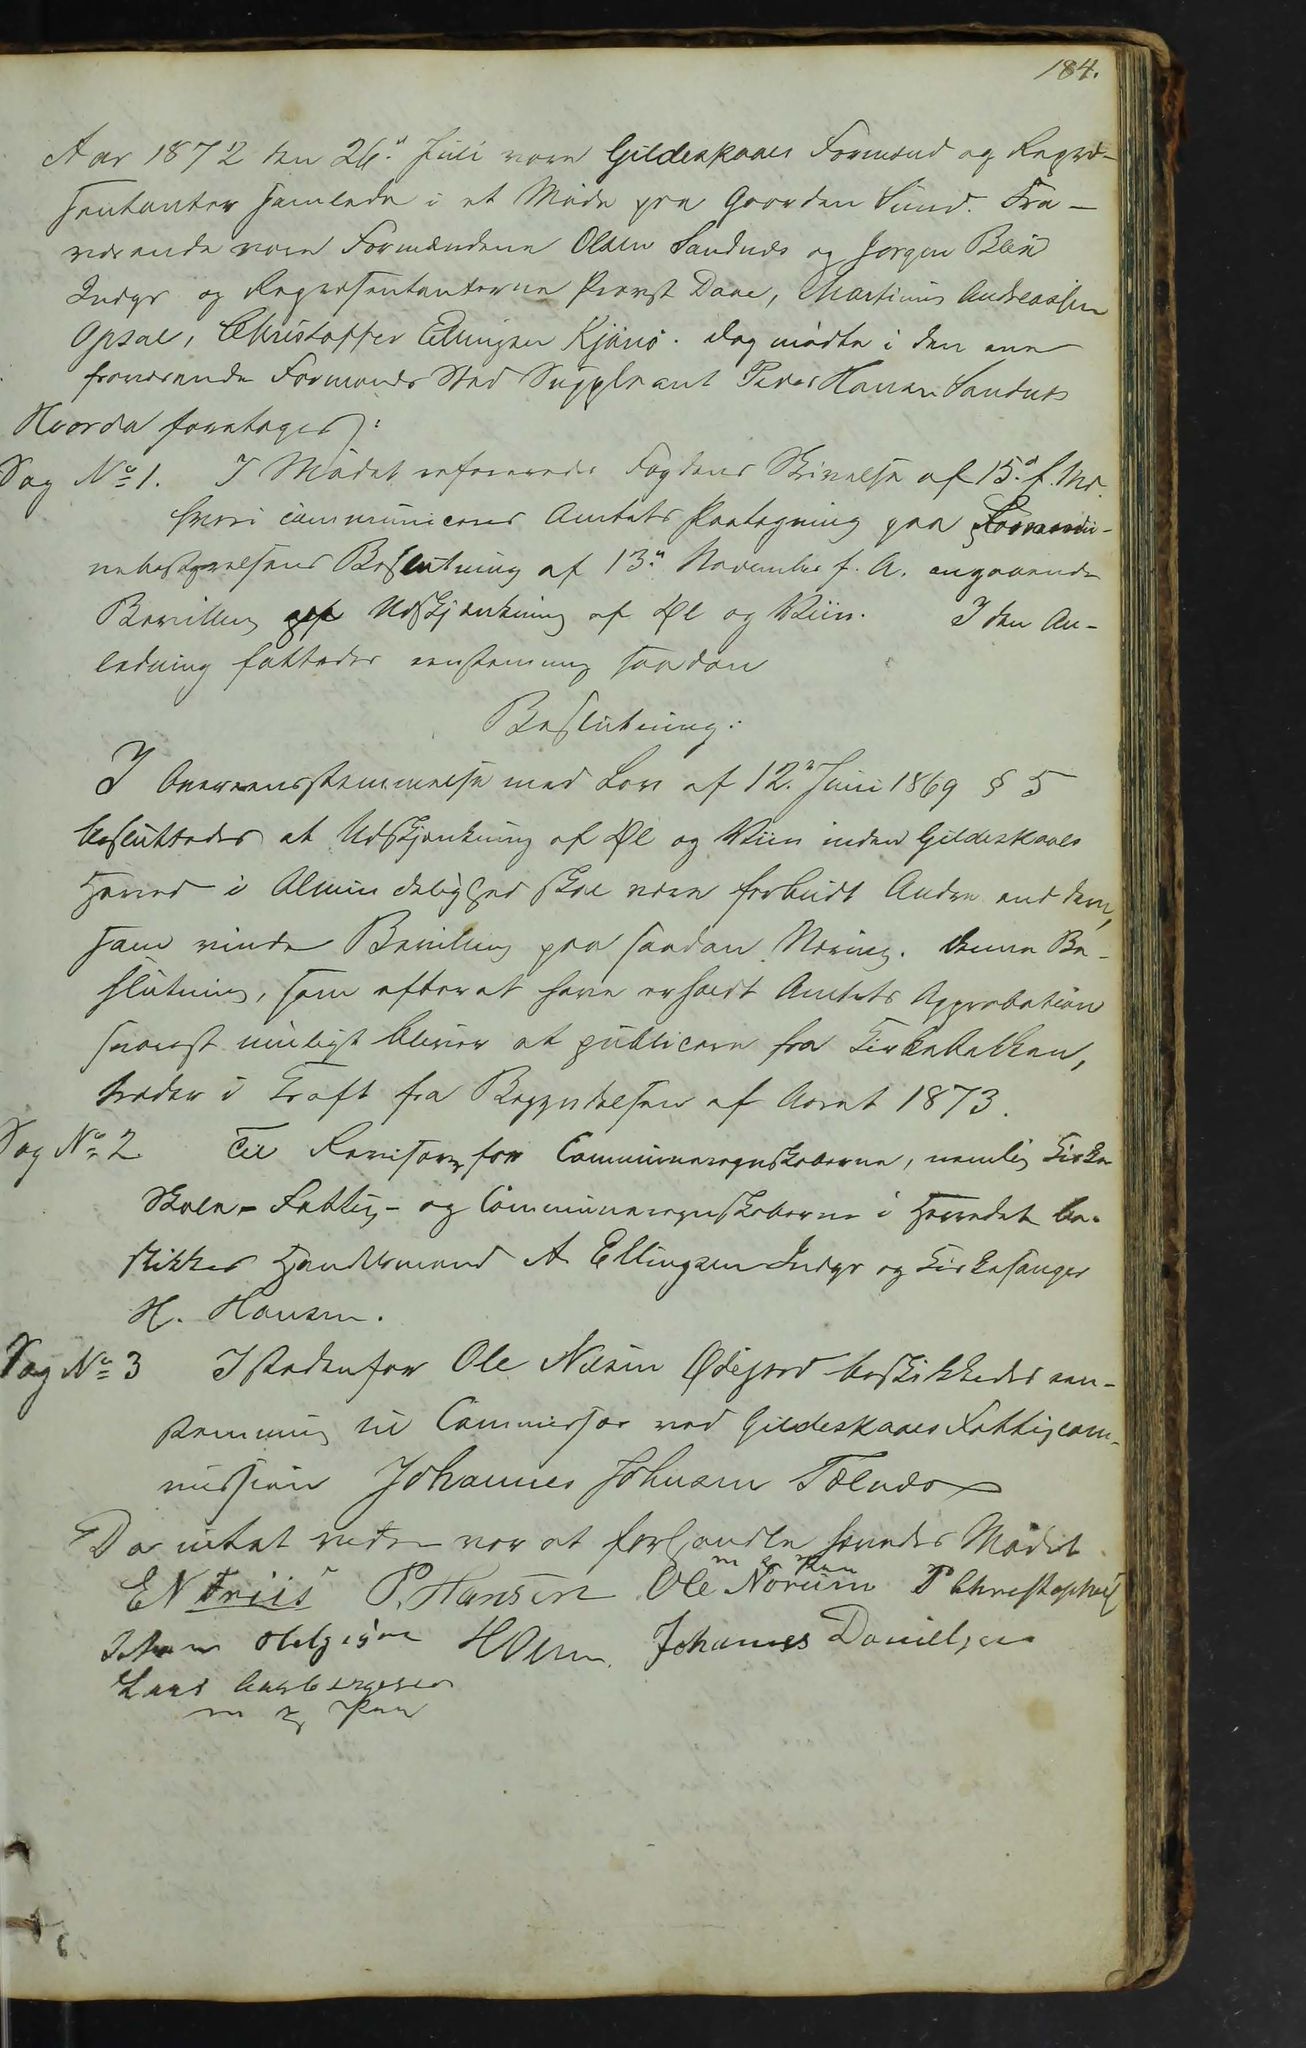 184.
Aar 1872 den 26.d Juli vare Gildeskaals Formænd og Repræ-
sentanter samlede i et Møde paa Gaarden Sund. Fra-
værende vare Formændene Olsen Sandnæs og Jørgen Blix
Indyr og Repræsentanterne Provst Daae, Martinus Andreassen
Opsal, Christoffer Ellingsen Kjønø. Dog mødte i den ene
fraværende Formands Sted Suppleant Peder Hansen Sandnæs
Hvorda foretoges:
Sag No 1. I Mødet refereredes Fogdens Skrivelse af 15.d f. Md.
hvori communiceres Amtets Paategning paa Communi-
nebestyrelsens Beslutning af 13.d November f. A. angaaende
Bevilling Udskjænkning af Øl og Viin. I den An-
ledning fattedes eenstemmig saadan
Beslutning:
I Overeensstemmelse med Lov af 12.d Juni 1869 § 5
besluttedes at Udskjænkning af Øl og Viin inden Gildeskaals
Herred i Almindelighed skal være forbudt Andre end dem,
som vinde Bevilling paa saadan Næring. Denne Be-
slutning, som efterat have erholdt Amtets Approbation
snarest muligt bliver at publicere fra Kirkebakken,
træder i Kraft fra Begyndelsen af Aaret 1873.
Sag No 2 Til Revisorer for Communeregnskaberne, nemlig Kirke
Skole- Fattig- og Communeregnskaberne i Herredet be-
skikkes Handelsmand A Ellingsen Indyr og Kirkesanger
H. Hansen.
Sag No 3 Istedenfor Ole Nilsen Ødegord beskikkedes een-
stemmig til Commissær ved Gildeskaals Fattigcom-
mission Johannes Johnsen Tælnæs
Da intet videre var at forhandle hævedes Mødet
EN Friis P. Hansen Ole Norum P Christophers
m p Pen
Johan Helgesen HOlsen. Johannes Danielsen
Lars Aasbergesen
m p Pen